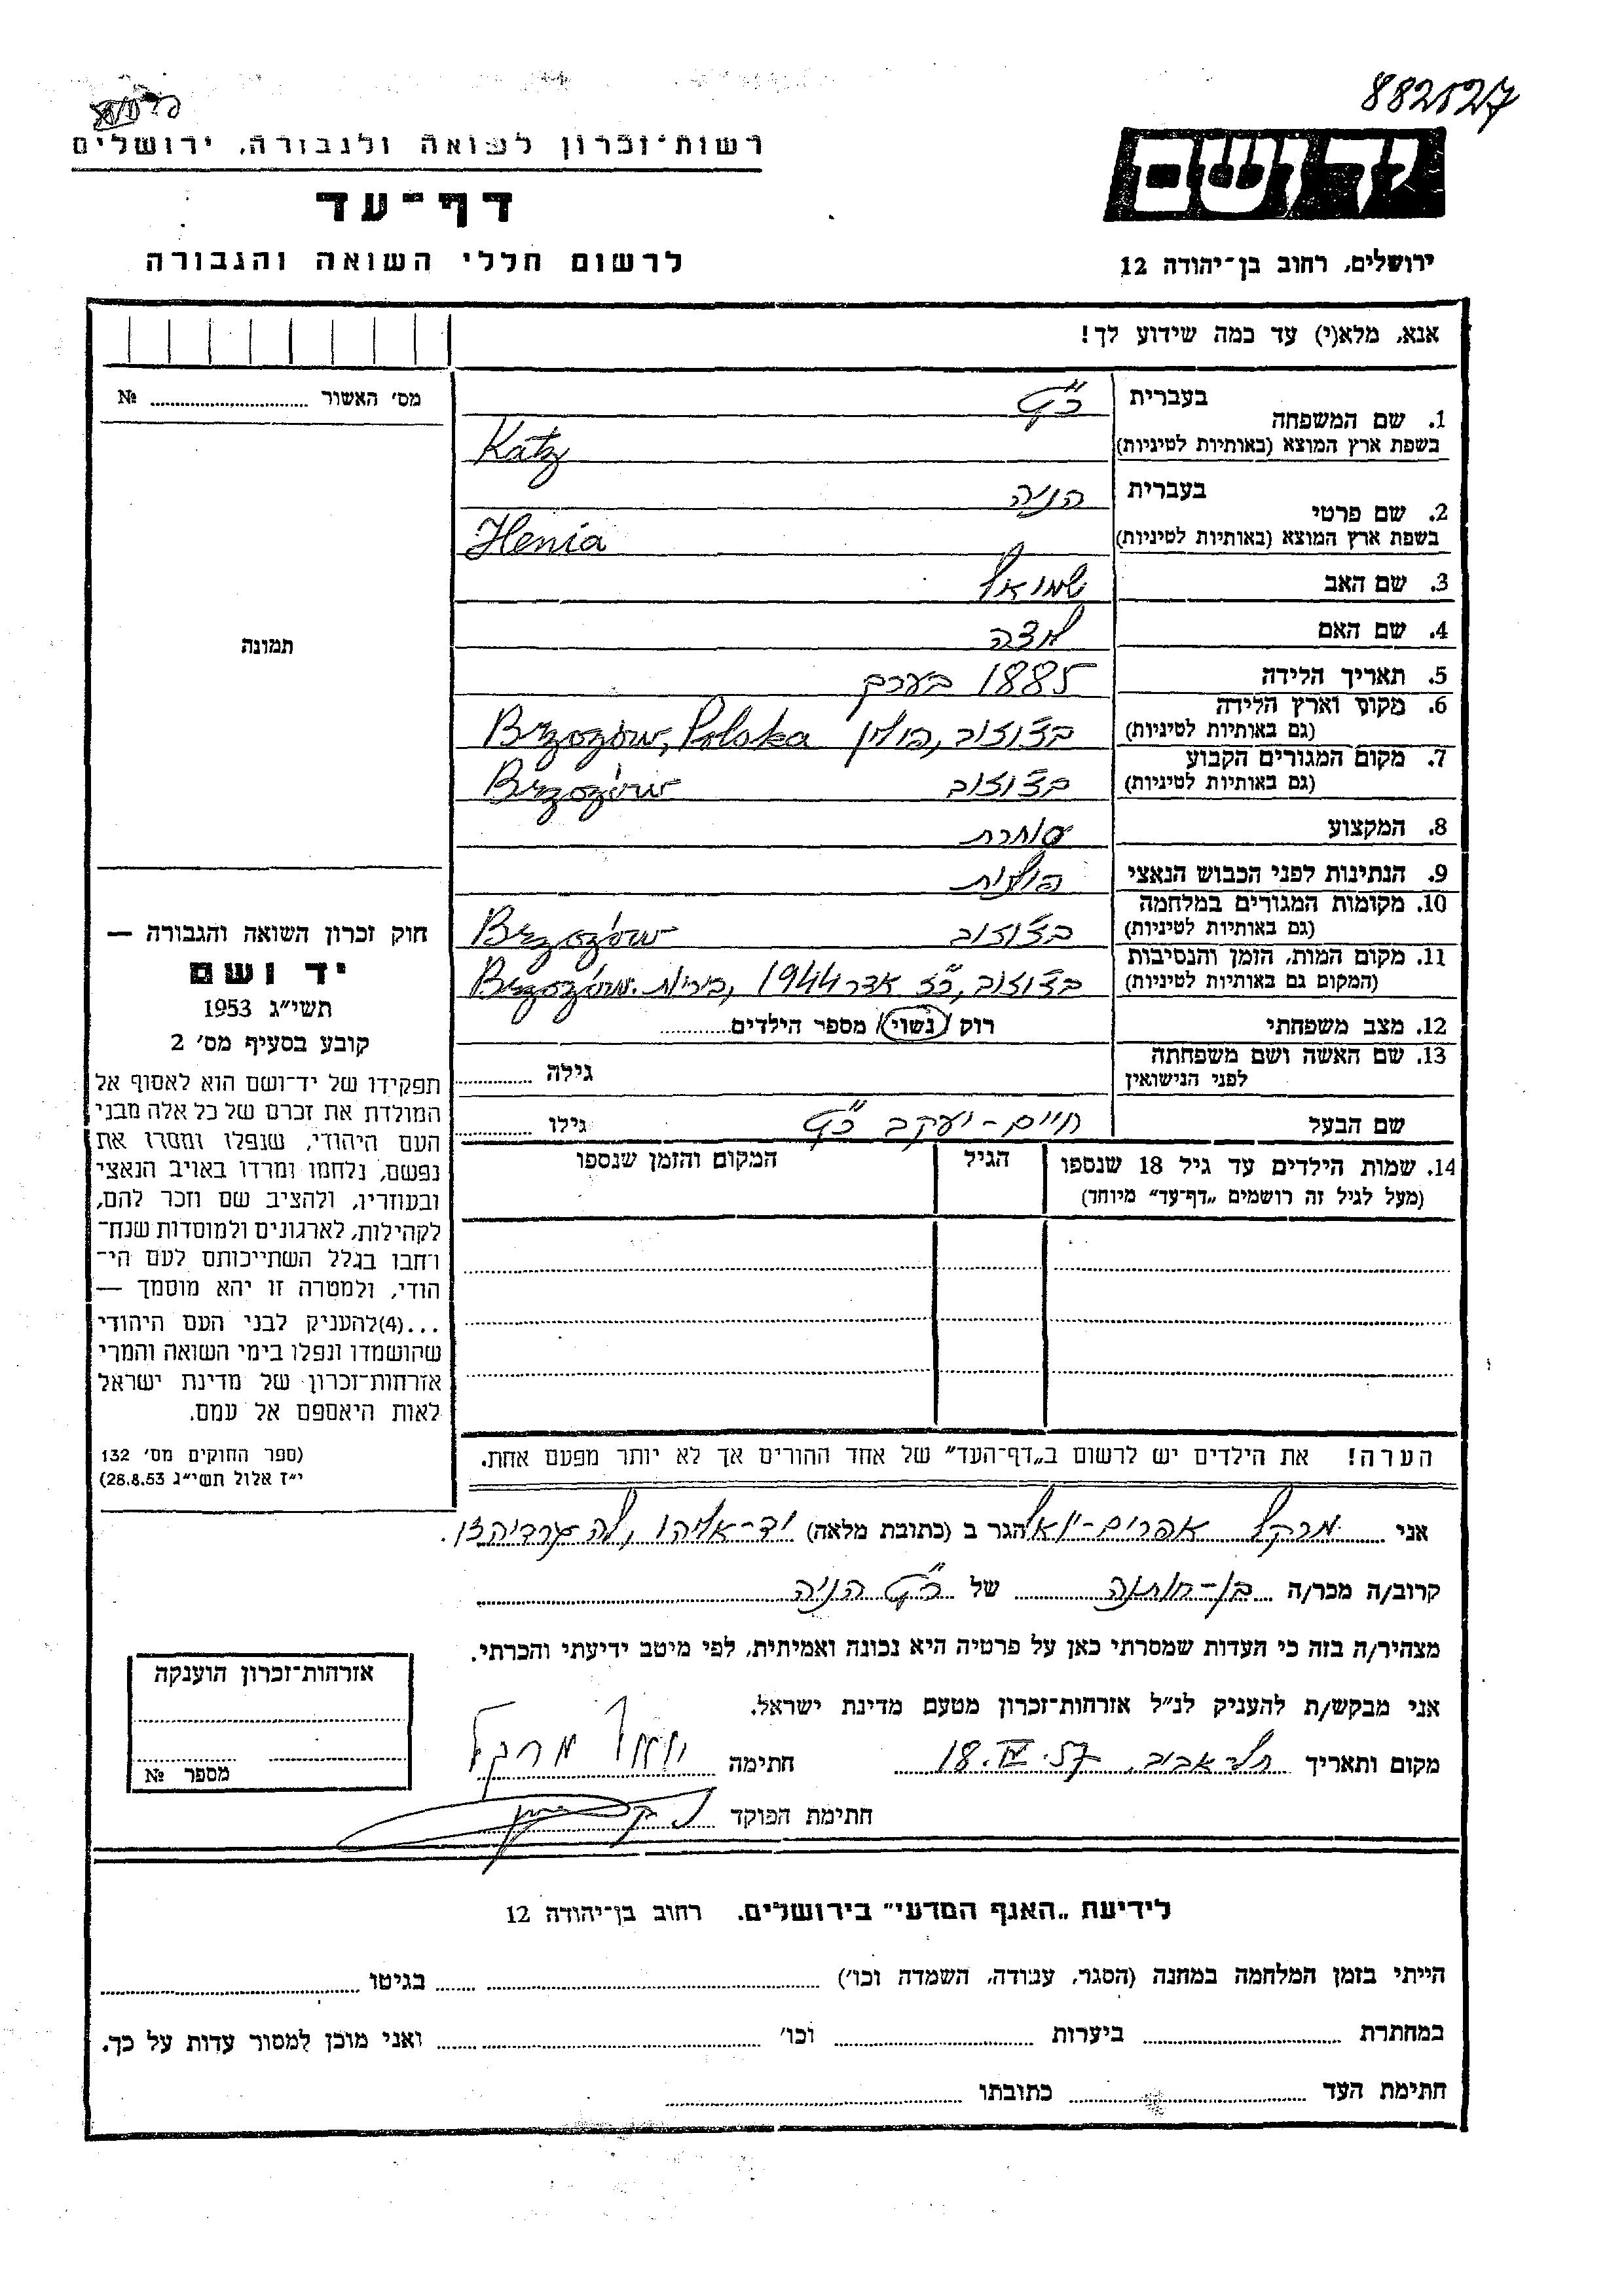 882527
רשות־זכרון לשואה ולגבורה, ירושלים
דף־עד
לרשום חללי השואה והגבורה
יד ושם
ירושלים, רחוב בן־יהודה 12
אנא, מלא(י) עד כמה שידוע לך!
מס׳ האשור № ........
1. שם המשפחה
בעברית כ״ץ
בשפת ארץ המוצא (באותיות לטיניות) Katz
2. שם פרטי
בעברית הניה
בשפת ארץ המוצא (באותיות לטיניות) Henia
3. שם האב שמואל
4. שם האם
5. תאריך הלידה 1885 בערך
6. מקום וארץ הלידה
(גם באותיות לטיניות) בז'וזוב, פולין Brzozów, Polska
7. מקום המגורים הקבוע
(גם באותיות לטיניות) בז'וזוב Brzozów
8. המקצוע סוחרת
9. הנתינות לפני הכבוש הנאצי פולנית
10. מקומות המגורים במלחמה
(גם באותיות לטיניות) בז'וזוב Brzozów
11. מקום המות, הזמן והנסיבות
(המקום גם באותיות לטיניות) בז'וזוב, כ״ג אדר 1944, ביריות. Brzozów
12. מצב משפחתי רוק / נשוי / מספר הילדים........
13. שם האשה ושם משפחתה
לפני הנישואין גילה ........
שם הבעל חיים - יעקב כ״ץ גילו ........
14. שמות הילדים עד גיל 18 שנספו
(מעל לגיל זה רושמים „דף־עד” מיוחד)
הגיל
המקום והזמן שנספו
הערה! את הילדים יש לרשום ב„דף־העד” של אחד ההורים אך לא יותר מפעם אחת.
תמונה
חוק זכרון השואה והגבורה —
יד ושם
תשי״ג 1953
קובע בסעיף מס׳ 2
תפקידו של יד־ושם הוא לאסוף אל
המולדת את זכרם של כל אלה מבני
העם היהודי, שנפלו ומסרו את
נפשם, נלחמו ומרדו באויב הנאצי
ובעוזריו, ולהציב שם וזכר להם,
לקהילות, לארגונים ולמוסדות שנח־
רחבו בגלל השתייכותם לעם הי־
הודי, ולמטרה זו יהא מוסמך —
...(4)להעניק לבני העם היהודי
שהושמדו ונפלו בימי השואה והמרי
אזרחות־זכרון של מדינת ישראל
לאות היאספם אל עמם.
(ספר החוקים מס׳ 132
י״ז אלול תשי״ג 28.8.53)
אני מרקל אפרים-יואל הגר ב (כתובת מלאה) יד-אליהו, לה גרדיה
קרוב/ה מכר/ה בן-חותנה של כ״ץ הניה
מצהיר/ה בזה כי העדות שמסרתי כאן על פרטיה היא נכונה ואמיתית, לפי מיטב ידיעתי והכרתי.
אני מבקש/ת להעניק לנ״ל אזרחות־זכרון מטעם מדינת ישראל.
מקום ותאריך תל אביב, 18.IV.57 חתימה יואל מרקל
חתימת הפוקד
אזרחות־זכרון הוענקה
מספר №
לידיעת „האגף המדעי” בירושלים. רחוב בן־יהודה 12
הייתי בזמן המלחמה במחנה (הסגר, עבודה, השמדה וכו׳) ........ בגיטו ........
במחתרת ........ ביערות ........ וכו׳ ........ ואני מוכן למסור עדות על כך.
חתימת העד ........ כתובתו ........